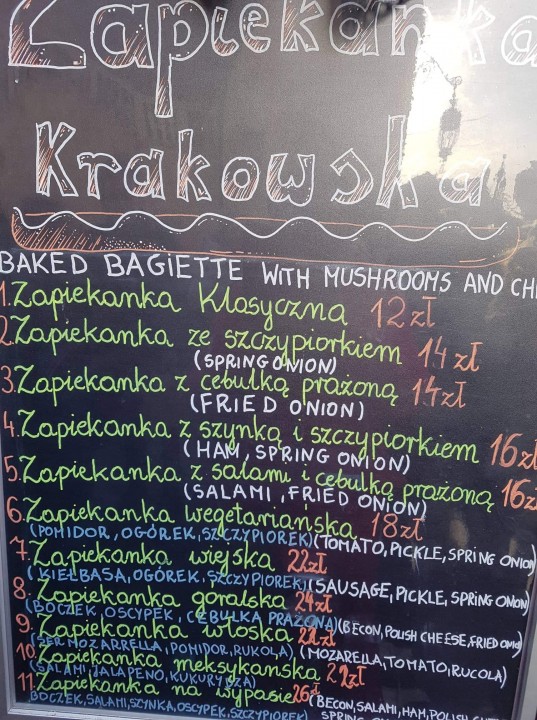 Zapiekanka
Krakowska
BAKED BAGIETTE WITH MUSHROOMS AND
1. Zapiekanka Klasyczna 12 zł
2. Zapiekanka ze szczypiorkiem 14 zł
(SPRING ONION)
3. Zapiekanka z cebulką prażoną 14 zł
(FRIED ONION)
4. Zapiekanka z szynką i szczypiorkiem 16 zł
(HAM, SPRING ONION)
5. Zapiekanka z salami i cebulką prażoną 16 zł
(SALAMI, FRIED ONION)
6. Zapiekanka wegetariańska 18 zł
(POMIDOR, OGÓREK, SZCZYPIOREK) (TOMATO, PICKLE, SPRING ONION)
7. Zapiekanka wiejska 22 zł
(KIEŁBASA, OGÓREK, SZCZYPIOREK) (SAUSAGE, PICKLE, SPRING ONION)
8. Zapiekanka goralska 24 zł
(BOCZEK, OSCYPEK, CEBULKA PRAŻONA) (BECON, POLISH CHEESE, FRIED ONION)
9. Zapiekanka włoska zł
(SER MOZARRELLA, POMIDOR, RUKOLA) (MOZARELLA, TOMATO, RUCOLA)
10. Zapiekanka meksykańska zł
(SALAMI, JALAPENO, KUKURYDZA)
11. Zapiekanka na wypasie 26 zł
BOCZEK, SALAMI, SZYNKA, OSCYPEK, SZCZYPIOREK) (BECON, SALAMI, HAM, POLISH
SPRING